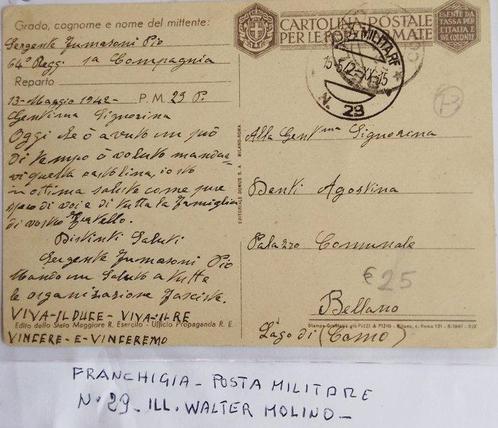 Grado, cognome e nome del mittente:
Sergente Fumasoni Pio
64° Regg. 1a Compagnia
Reparto
13-Maggio 1942- P.M. 29 P.
Gentima Signorina
Oggi che ò avuto un pò
di tempo ò voluto mandar
vi questa cartolina, io sto
in ottima salute come pure
spero di voi e di tutta la famiglia
di vostro fratello.
Distinti Saluti
Sergente Fumasoni Pio
Mando un Saluto a tutte
le organizazione fasciste.
VIVA-IL DUCE-VIVA-IL RE
Edito dallo Stato Maggiore R. Esercito - Ufficio Propaganda R. E.
VINCERE-E-VINCEREMO
EDITORIALE DOMUS S. A. MILANO-ROMA
CARTOLINA POSTALE
PER LE FORZE ARMATE
ESENTE DA
TASSA PER
L'ITALIA E
SUE COLONIE
POSTA MILITARE
N. 29
Alla Gentma Signorina
Denti Agostina
Palazzo Comunale
€25
Bellano
Lago di (Como)
FRANCHIGIA - POSTA MILITARE
N. 29 - ILL. WALTER MOLINO -